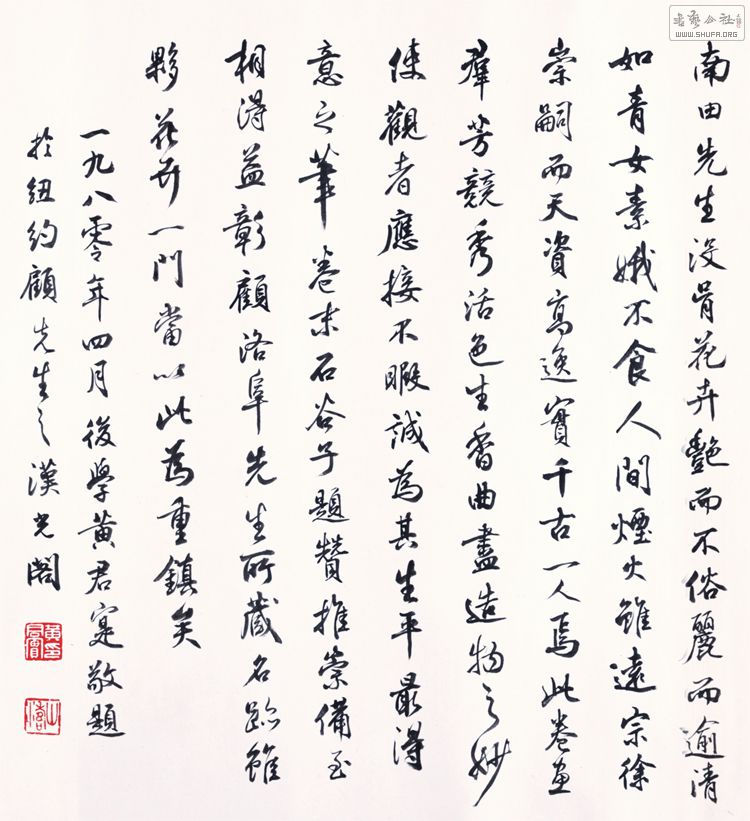 南田先生没骨花卉艷而不俗麗而逾清
如青女素娥不食人間煙火雖遠宗徐
崇嗣而天資高逸實千古一人焉此卷畫
羣芳競秀活色生香曲盡造物之妙
使觀者應接不暇誠為其生平最得
意之筆卷末石谷子題贊推崇備至
相得益彰顧洛阜先生所藏名跡雖
夥花卉一門當以此為重鎮矣
一九八零年四月後學黃君寔敬題
於紐約顧先生之漢光閣
書藝公社
WWW.SHUFA.ORG